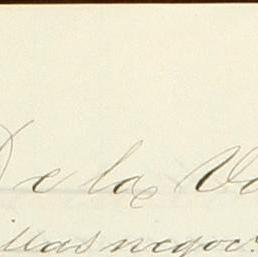 De la V
illas negoc